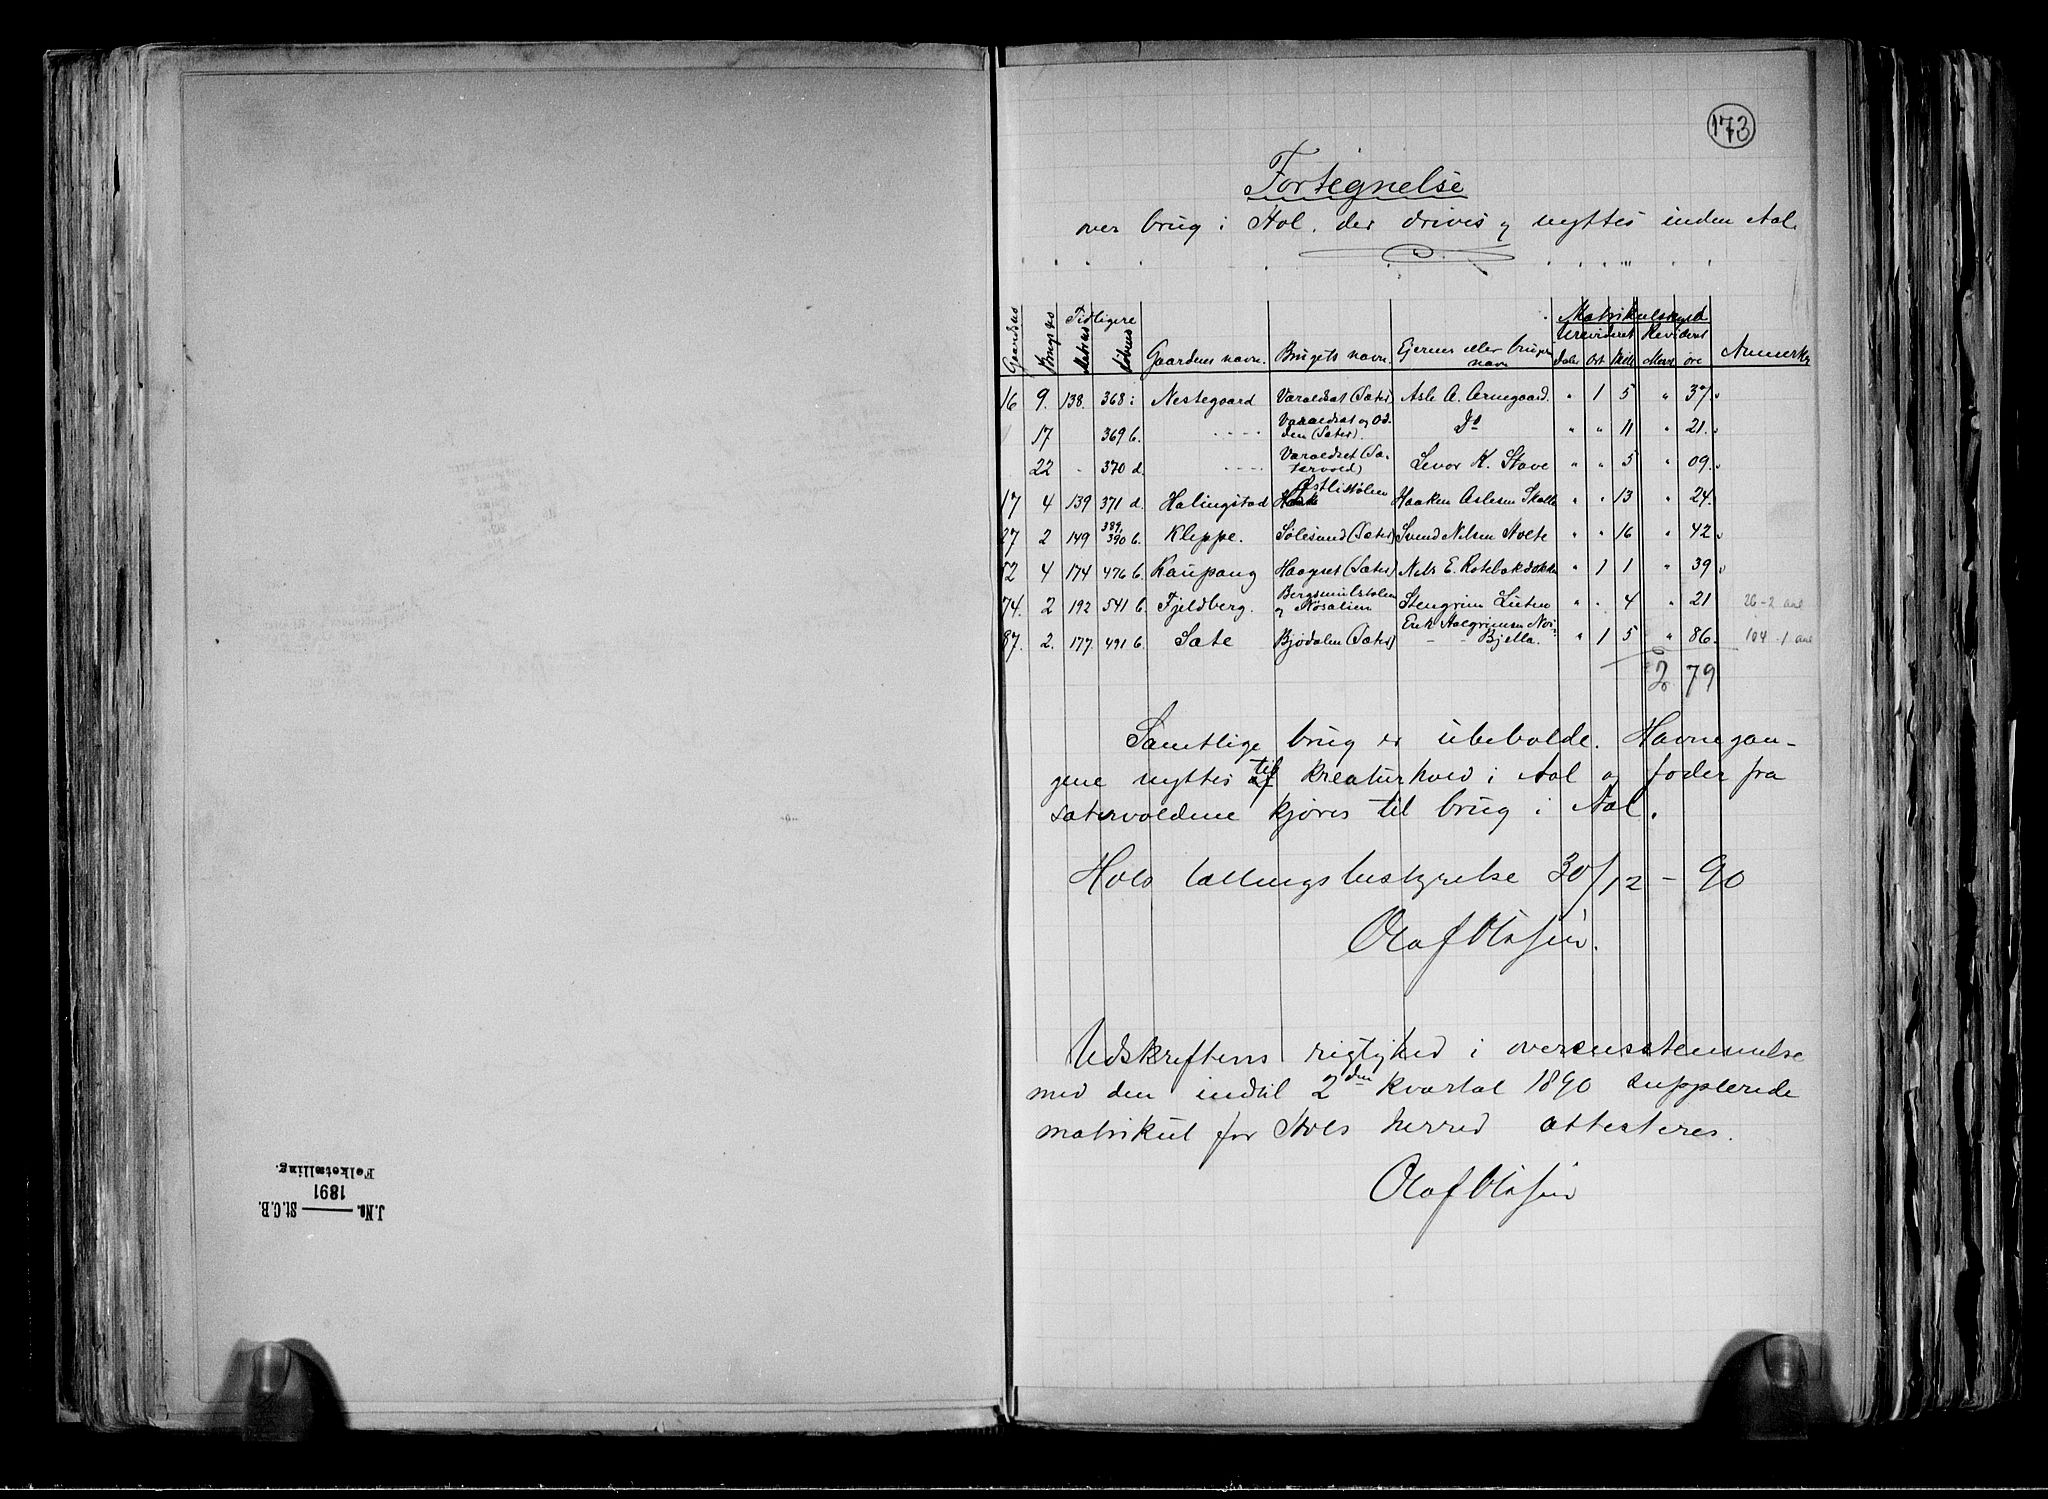 173
Fortegnelse
over brug i Hol, der drives og nyttes inden Aal.
Gaardsno Brugsno Tidligere Matrno Løbeno Gaardens navn. Brugets navn. Ejerens eller brugerens navn Matrikulskyld Urevideret Daler Ort Skill Revideret Mark øre Anmerkn
16 9. 138. 368 i Nestegaard Varaldset (Sæter) Asle A. Arnegaard. " 1 5 " 37.
17 369 b. - - - - Varaldset og Odden (Sæter). Do " " 11 " 21.
22 - 370 d. - - - - Varaldset (Sætervold) Levor K. Stave " " 5 " 09.
17 4 139 371 d. Halingstad Østlistølen Haaken Aslesen Skolte " " 13 " 24.
27 2 149 389, 390 b. Kleppe. Sølesund (Sæter) Svend Nilsen Nolte " " 16 " 42.
52 4 174 476 b. Kaupang Haagset (Sæter) Nils E. Rotebakdokken " 1 1 " 39.
74. 2 192 541 b. Fjeldberg. Bergsmulstølen og Nøsalien Stengrim Lieten " " 4 " 21 26-2 aal
87. 2. 177. 491 b. Sate Bjødalen (Sæter) Erik Aslegrimsen Noi- - - Bjella. " 1 5 " 86. 104-1 aal
2 79
Samtlige brug er ubebodde. Havnegan-
gene nyttes til kreaturhold i Aal og foder fra
sætervoldene kjøres til brug i Aal.
Hols tællingsbestyrelse 30/12 - 90
Olaf Olsen.
Udskriftens rigtighed i overensstemmelse
med den indtil 2den kvartal 1890 supplerede
matrikul for Hols herred attesteres.
Olaf Olsen
J.No. — St.C.B.
1891
Folketælling.